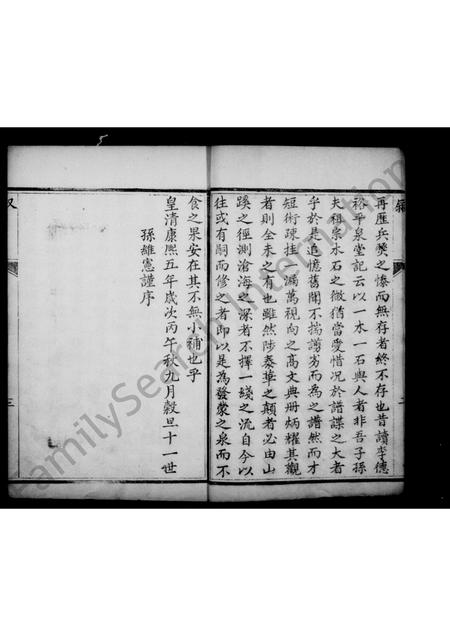 再匯兵燹之慘而無存者終不存也昔讀李德
裕平泉堂記云以一木一石與人者非吾子孫
夫祖宗水石之微猶當愛惜况於譜諜之大者
乎於是追憶舊聞不揣謭劣而為之譜然而才
短術疎挂一漏萬視向之高文典冊炳耀其觀
者則全未之有也雖然陟泰華之巔者必由山
蹊之徑測滄海之深者不擇一綫之流自今以
往或有嗣而修之者即以是為發蒙之泉而不
食之果安在其不無小補也乎
皇清康熙五年歲次丙午秋九月穀旦十一世
孫維憲謹序
三
FamilySearch International